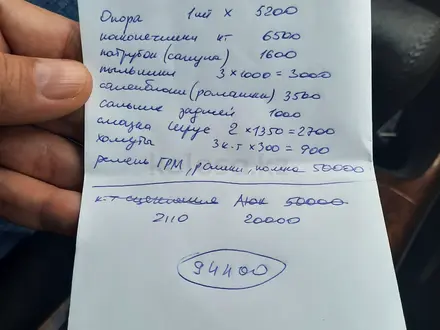 Опора 1 шт × 5200
наконечники кт 6500
патрубок (сапуна) 1600
пыльники 3 × 1000 = 3000
саленблоки (ромашки) 3500
сальник задней 1000
смазка 2 × 1350 = 2700
хомуты 3 к.т × 300 = 900
ремень ГРМ, ролики, помпа 50000
к-т сцепления 50000
2110 20000
94400